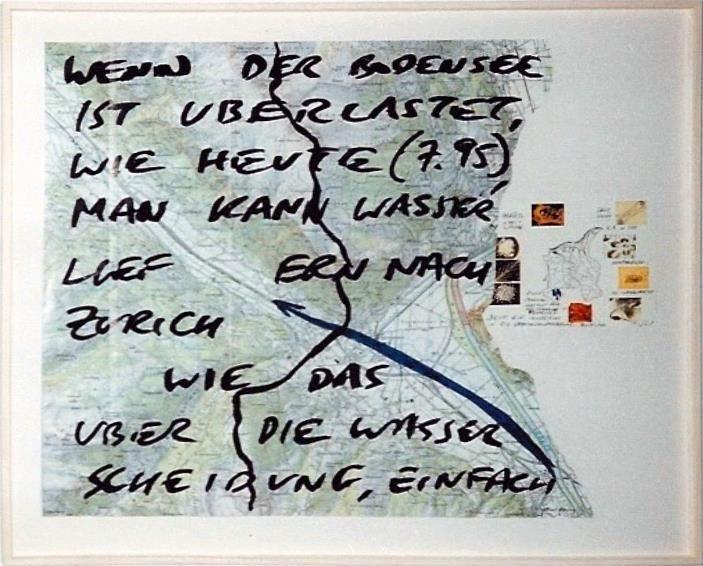 WENN DER BODENSEE
IST UBERLASTET,
WIE HEUTE (7.95),
MAN KANN WASSER
LIEFERN NACH
ZURICH
WIE DAS
UBER DIE WASSER
SCHEIDUNG, EINFACH